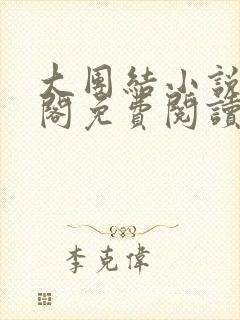 大團結小說
閣免費閱讀
李克偉